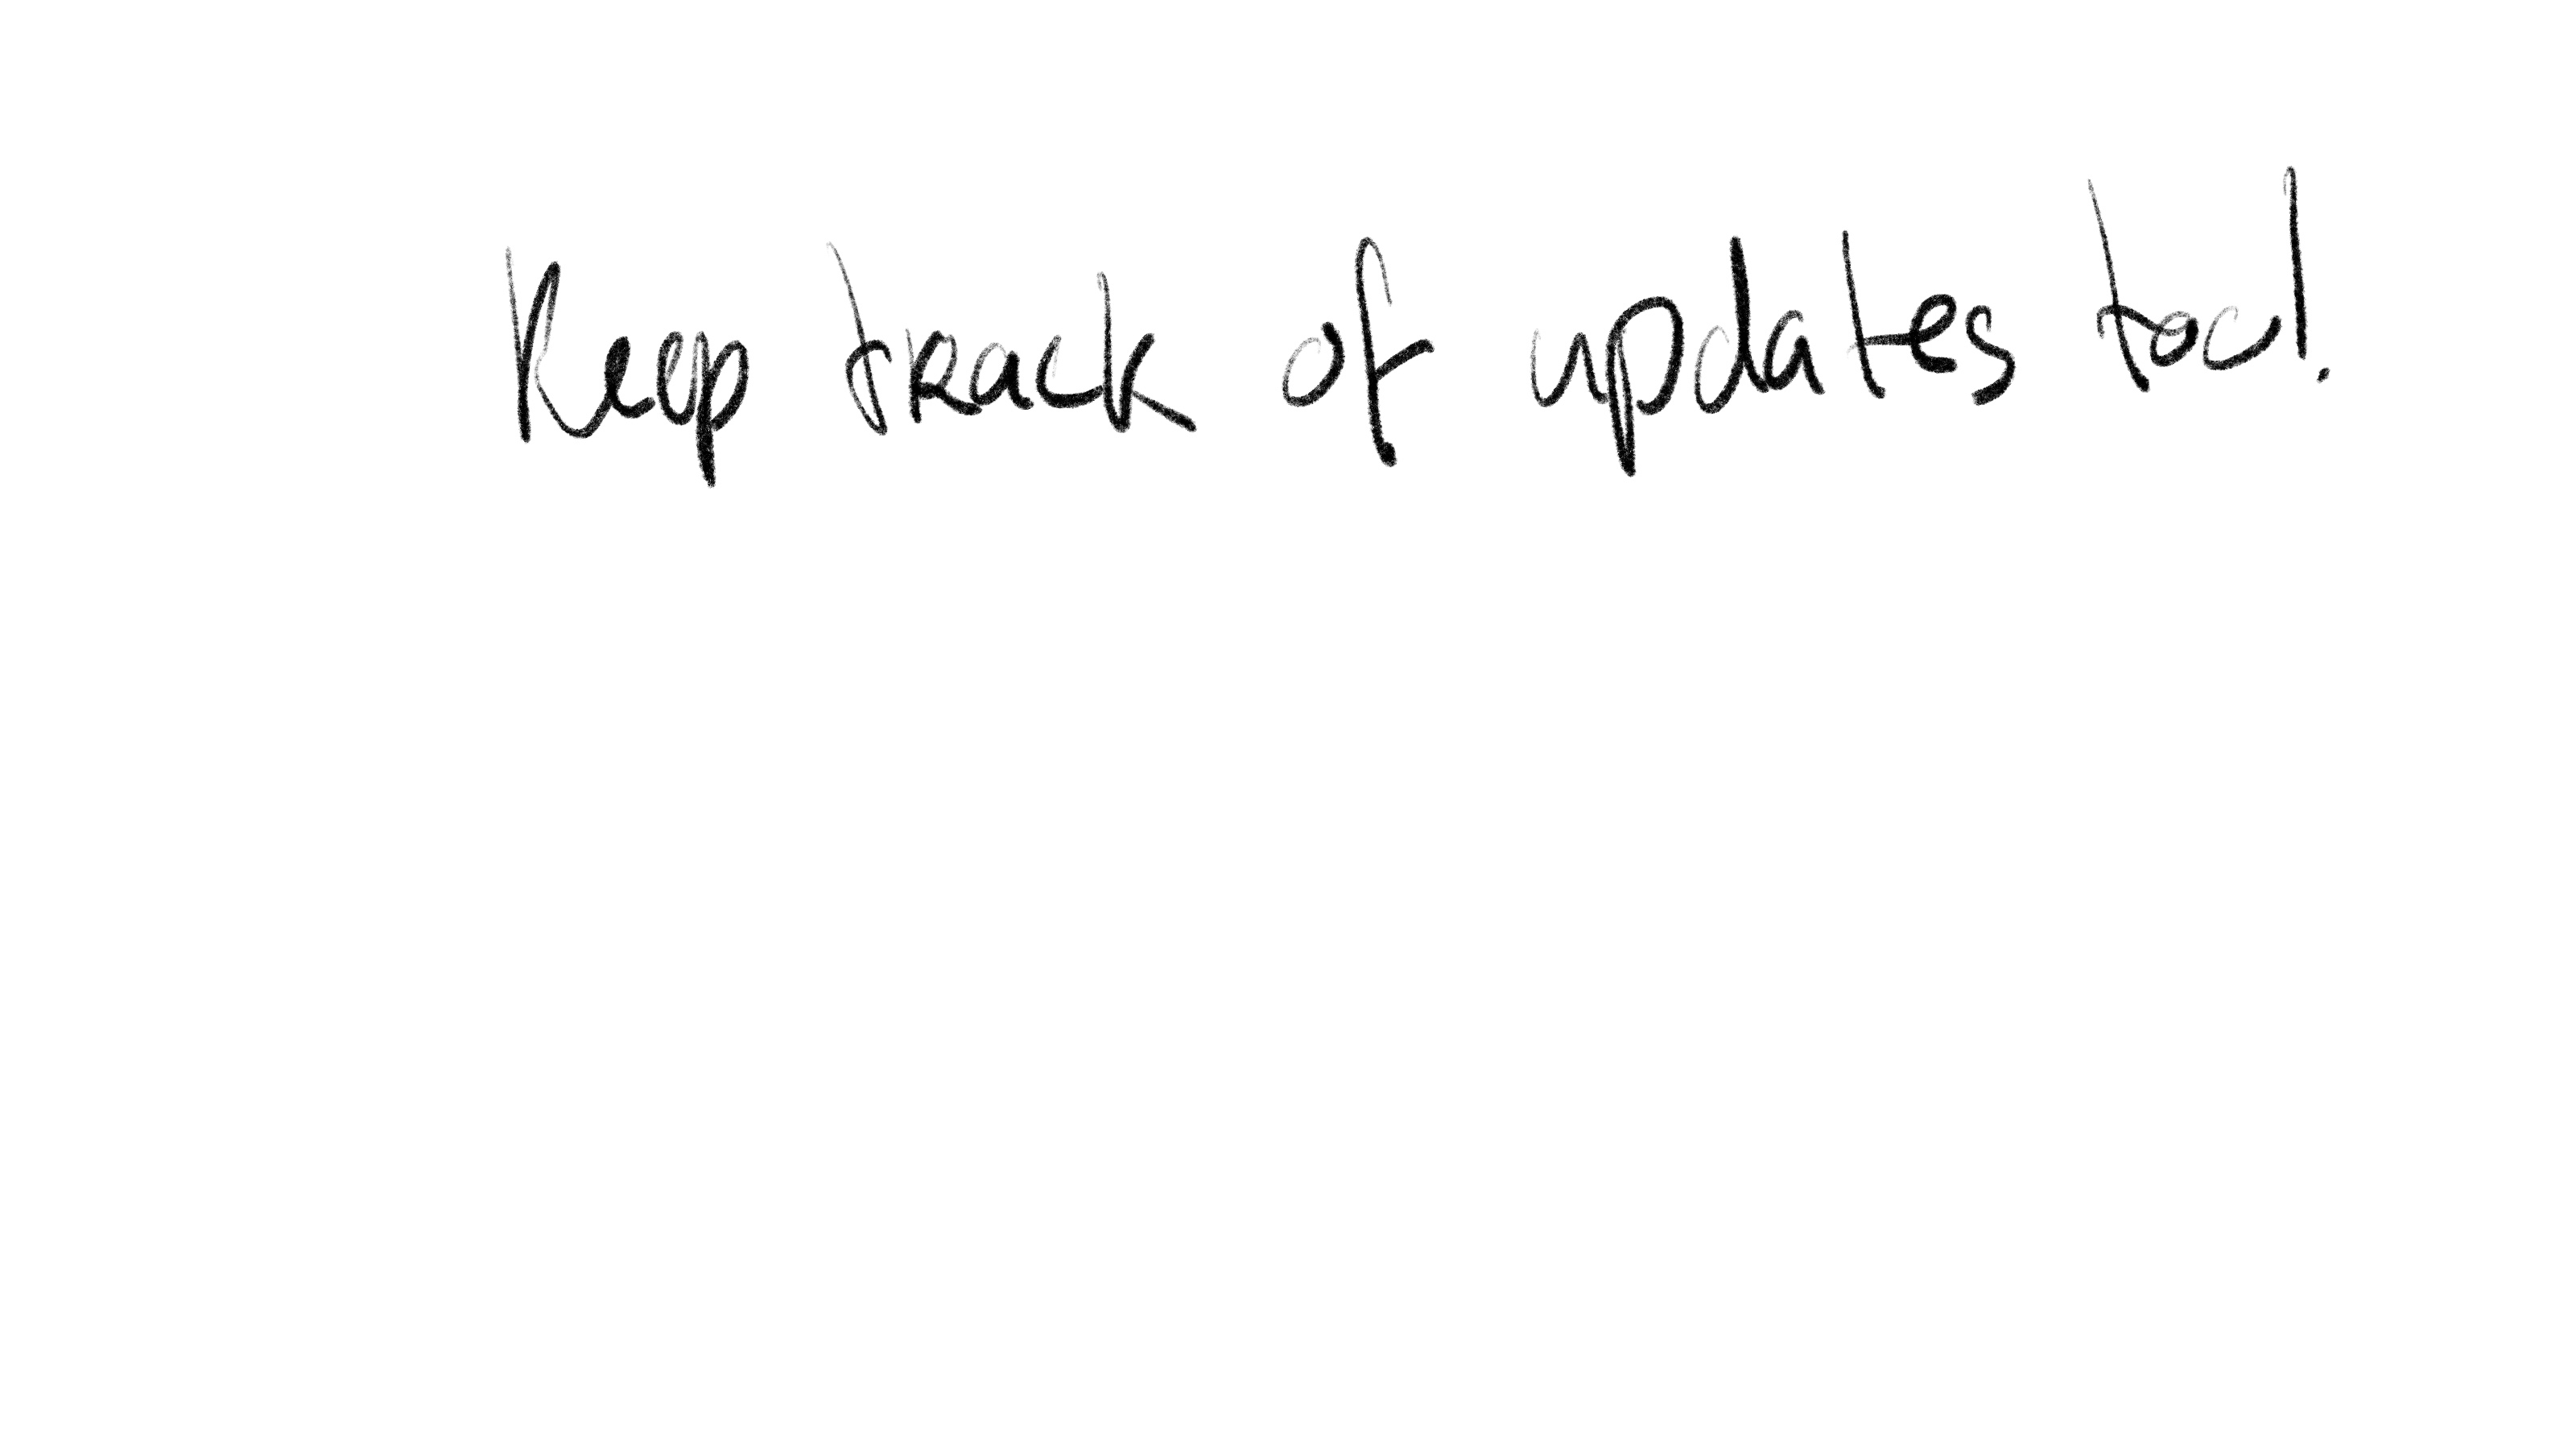 Keep track of updates too!